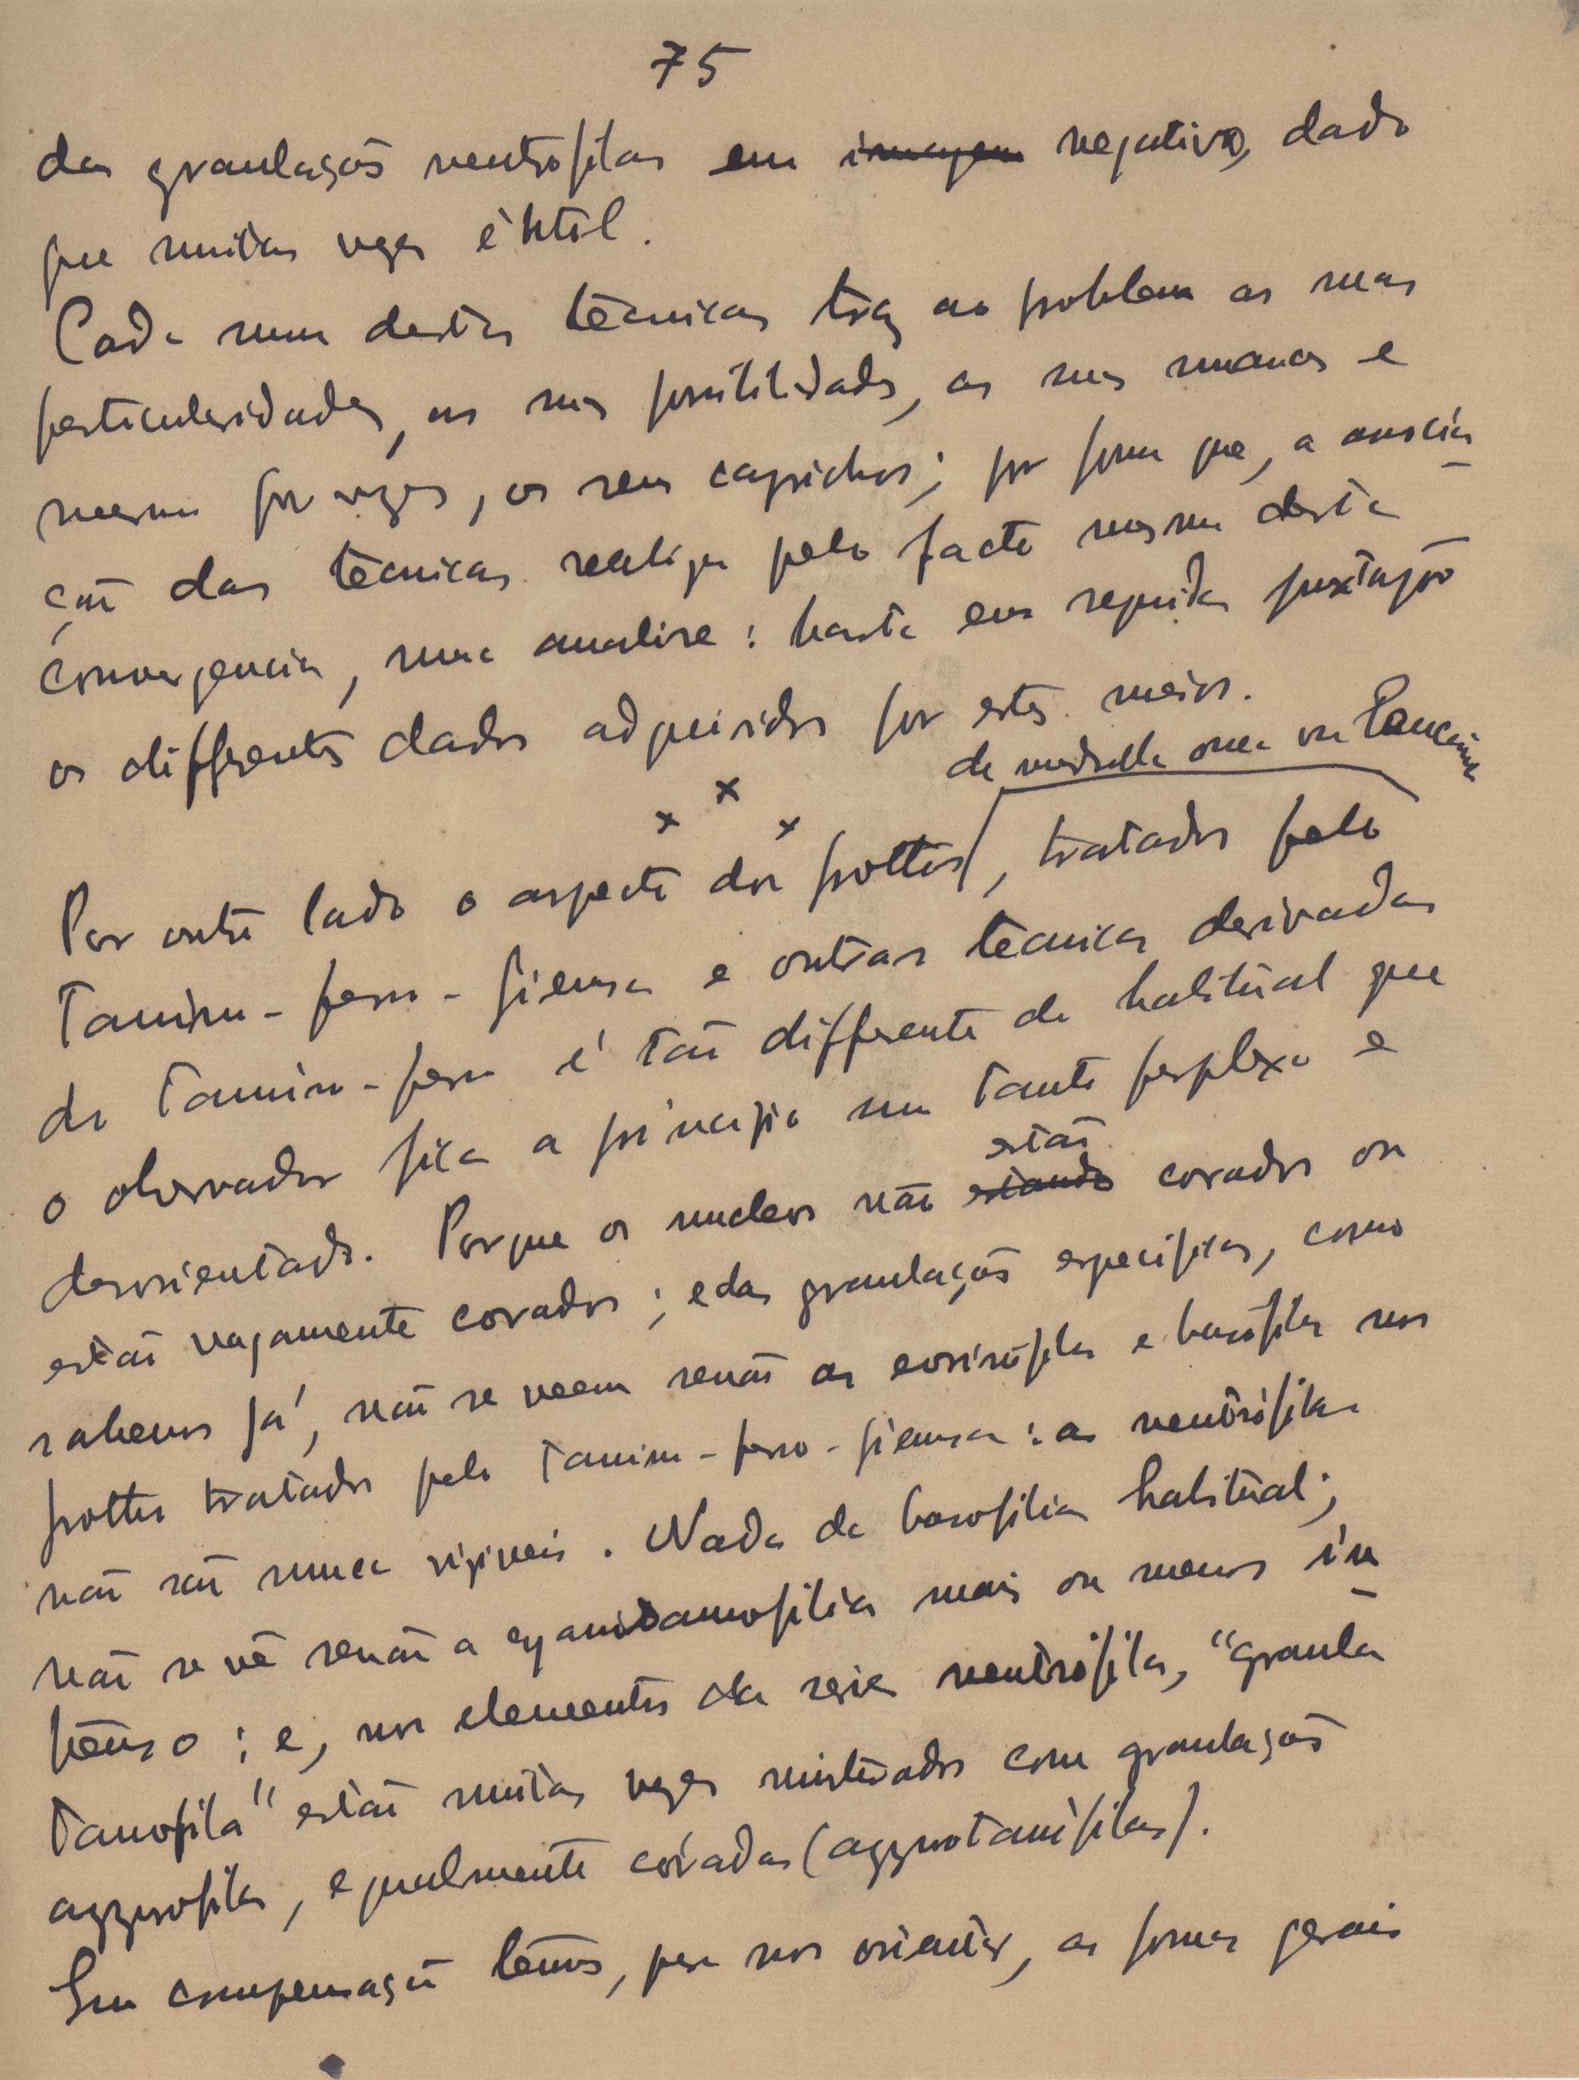 75
das granulaçōs neutrofilas em imagem negativo, dado
que muitas vezes é util.
Cada uma destas tecnicas traz ao problema as suas
particularidades, as suas possibilidades, as suas nuances e
mesmo por vezes, os seus caprichos; por forma que, a associa
çaõ das tecnicas realiza pelo facto mesmo desta
convergencia, uma analise: basta em seguida juxtapôr
os differentes dados adquiridos por estes meios.
x x x
de medulla ossea ou leucemia
Por outro lado o aspecto dos frottis, tratados pelo
Tanino-ferro-Giemsa e outras tecnicas derivadas
do Tanino-ferro é taõ differente do habitual que
o observador fica a principio um tanto perplexo e
estaõ
desorientado. Porque os nucleos não estando corados ou
estaõ vagamente corados; e das granulaçōs especificas, como
sabemos já, naõ se veem senaõ as eosinófilas e basófilas nos
frottis tratados pelo Tanino-ferro-Giemsa: as neutrófilas
naõ saõ nunca visiveis. Nada de basofilia habitual;
naõ se vê senaõ a cyanotanofilia mais ou menos in
tenso: e, nos elementos da serie neutrófila, "granula
tanofila" estaõ muitas vezes misturados com granulaçōs
azzurofilas, egualmente córadas (azzurotanófilas).
Em compensaçaõ temos, para nos orientar, as formas gerais